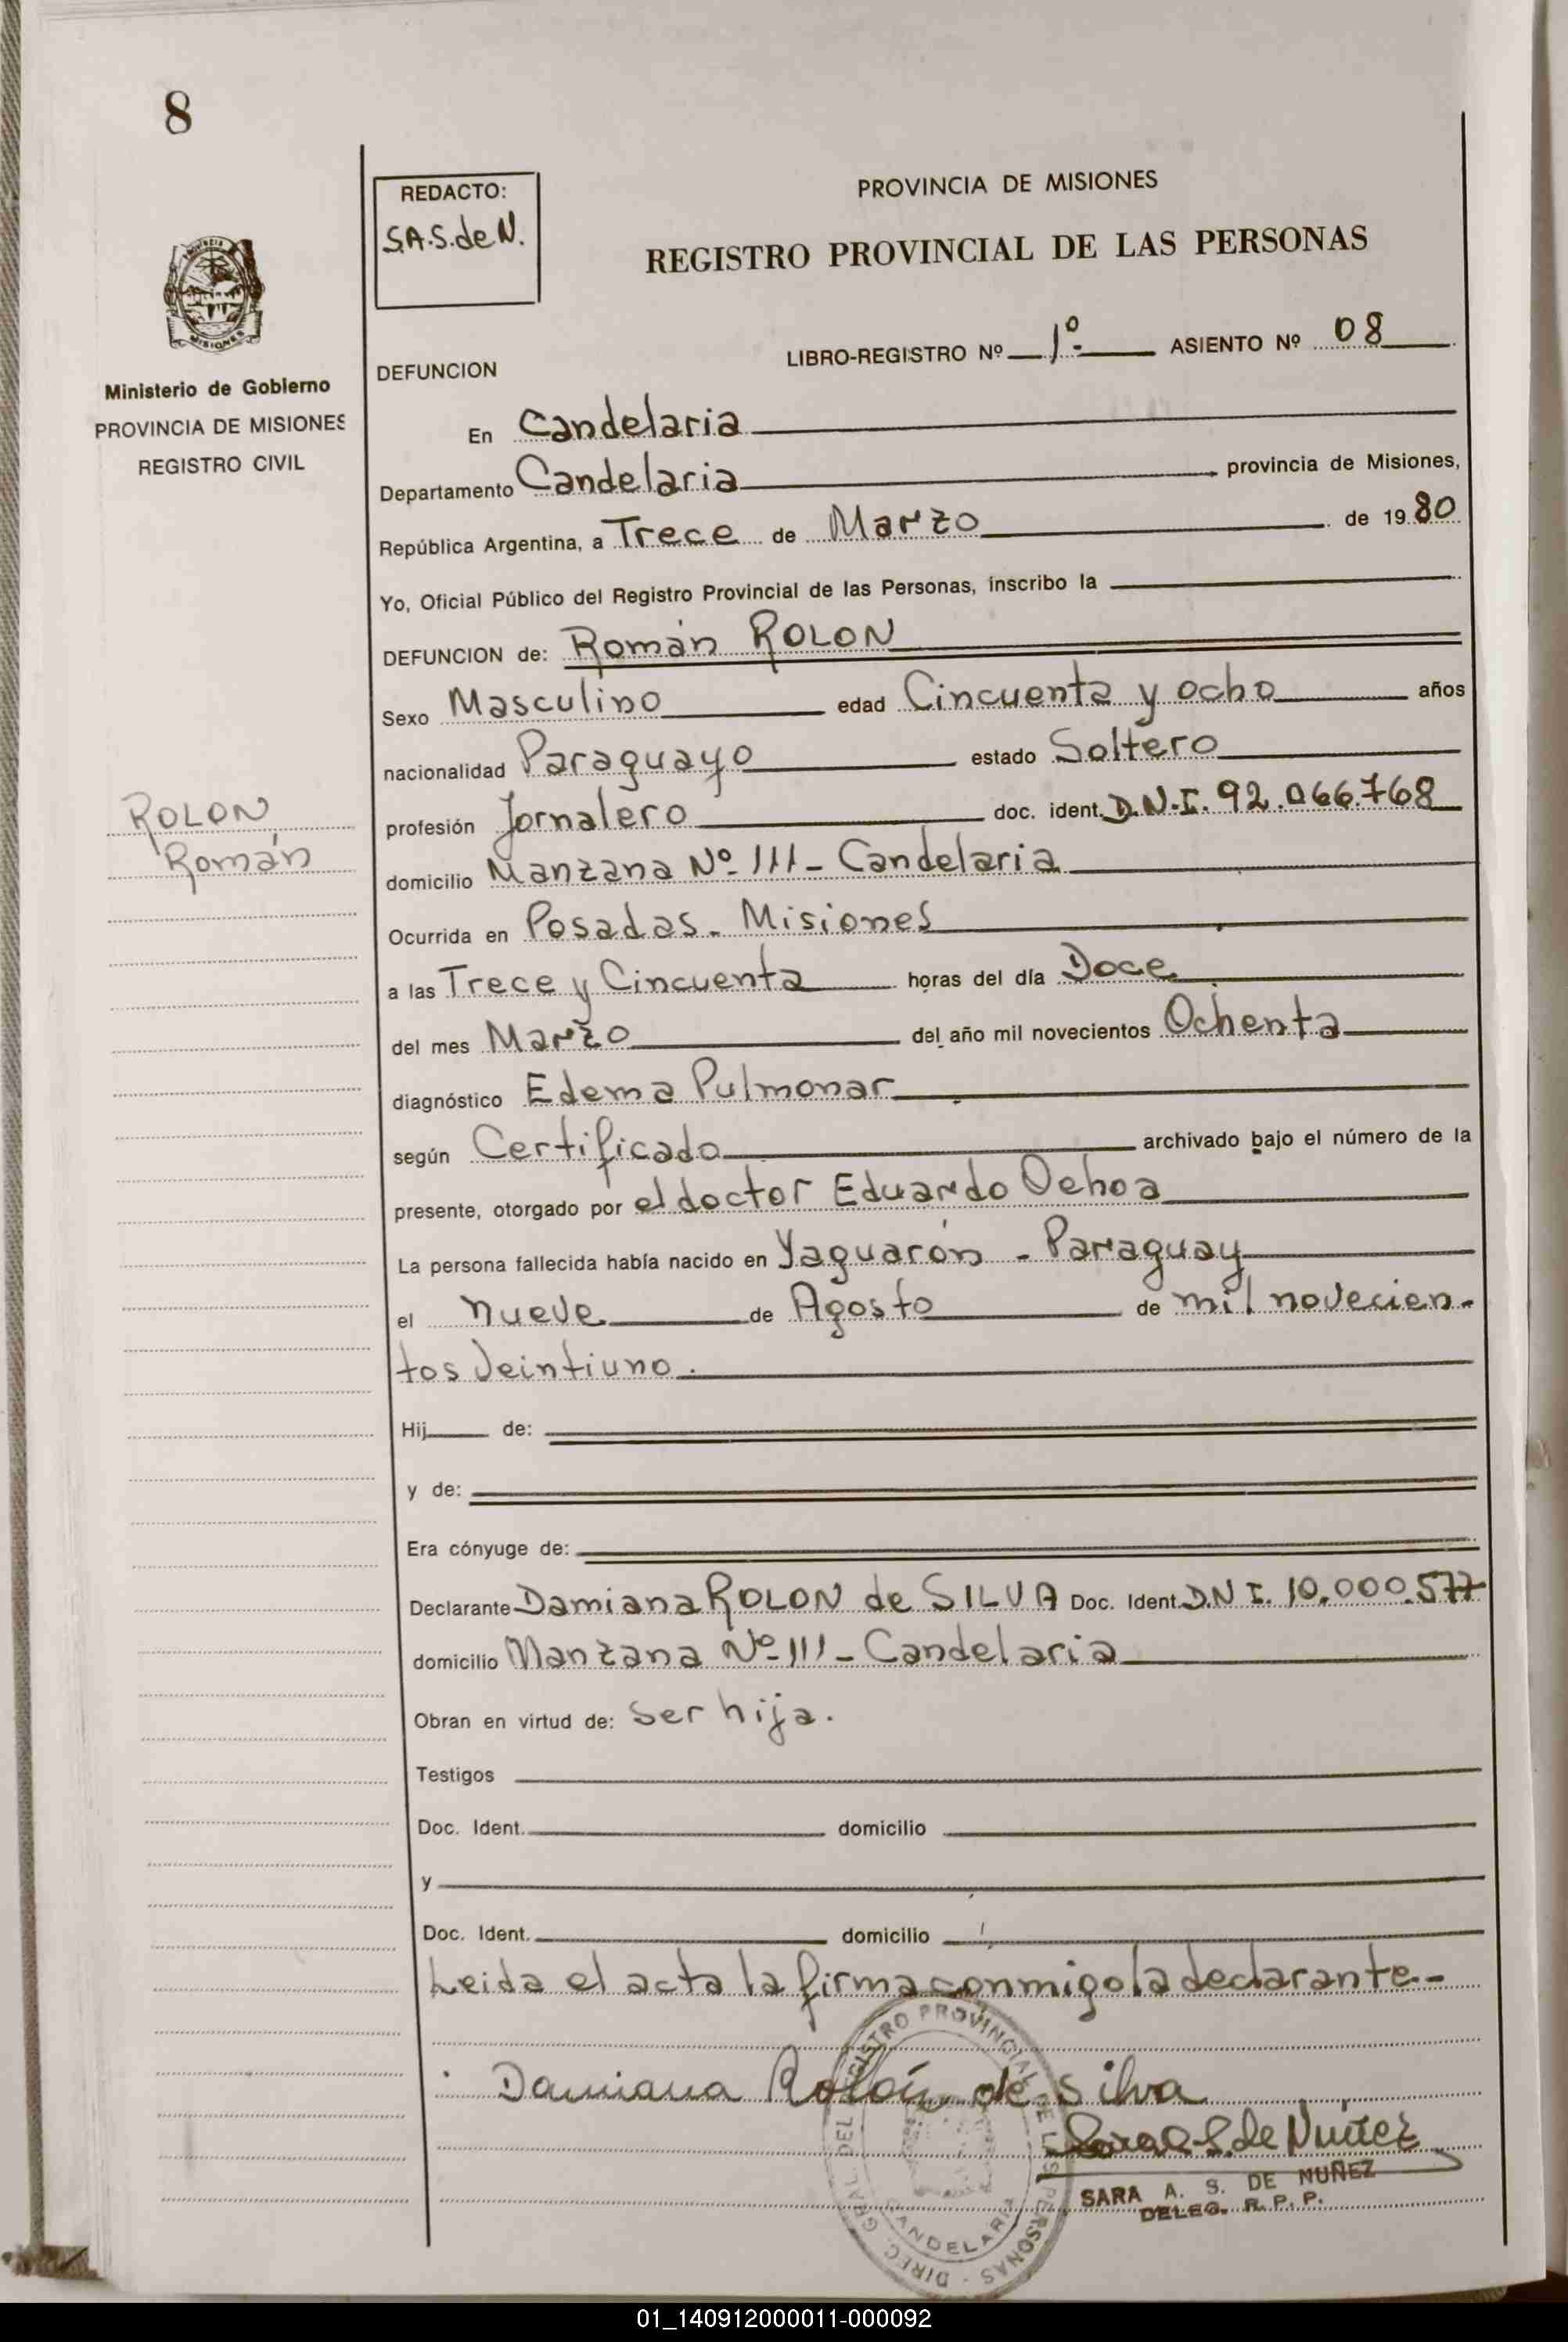 8
REDACTO:
S.A.S. de N.
PROVINCIA DE MISIONES
REGISTRO PROVINCIAL DE LAS PERSONAS
LIBRO-REGISTRO Nº 1º- ASIENTO Nº 08
MISIONES
Ministerio de Gobierno
PROVINCIA DE MISIONES
REGISTRO CIVIL
DEFUNCION
En Candelaria
Departamento Candelaria provincia de Misiones,
República Argentina, a Trece de Marzo de 1980
Yo, Oficial Público del Registro Provincial de las Personas, inscribo la
DEFUNCION de: Román ROLON
Sexo Masculino edad Cincuenta y ocho años
nacionalidad Paraguayo estado Soltero
ROLON
Román
profesión Jornalero doc. ident. D.N.I. 92.066.768
domicilio Manzana Nº 111 - Candelaria
Ocurrida en Posadas - Misiones
a las Trece y Cincuenta horas del día Doce
del mes Marzo del año mil novecientos Ochenta
diagnóstico Edema Pulmonar
según Certificado archivado bajo el número de la
presente, otorgado por el doctor Eduardo Ochoa
La persona fallecida había nacido en Yaguarón - Paraguay
el nueve de Agosto de mil novecien-
tos veintiuno.
Hij de:
y de:
Era cónyuge de:
Declarante Damiana ROLON de SILVA Doc. Ident. D.N.I. 10.000.577
domicilio Manzana Nº 111 - Candelaria
Obran en virtud de: ser hija.
Testigos
Doc. Ident. domicilio
y
Doc. Ident. domicilio
Leida el acta la firma conmigo la declarante-
Damiana Rolón de Silva
Sara A. S. de Nuñez
SARA A. S. DE NUÑEZ
DELEG. R. P. P.
DIREC. GRAL. DEL REGISTRO PROVINCIAL DE LAS PERSONAS -
CANDELARIA
01_140912000011-000092